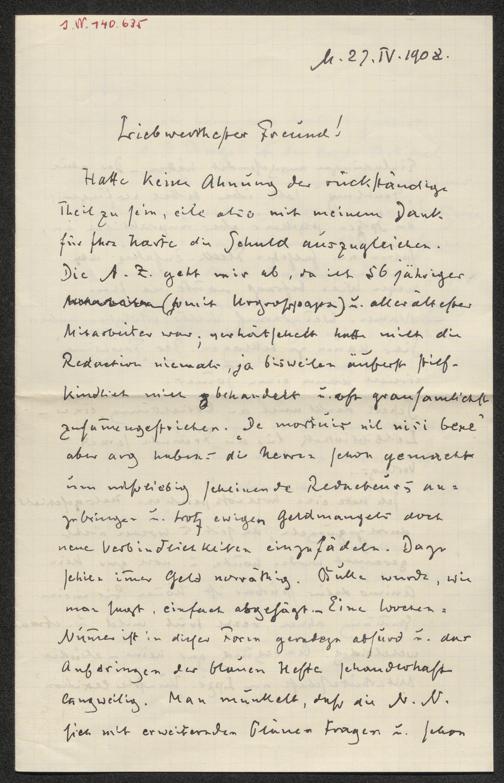 J.N. 140.635
M. 27.IV.1908.
Liebwerthester Freund!
Hatte keine Ahnung der rückständige
Theil zu sein, eile also mit meinem Dank
für Ihre Karte die Schuld auszugleichen.
Die A. Z. geht mir ab, da ich 56 jähriger
(somit Urgrosspapa) u. allerältester
Mitarbeiter war; verhätschelt hatte mich die
Redaction niemals, ja bisweilen äußerst stief-
kindlich mich behandelt u. oft grausamlichst
zusammengestrichen. "De mortuis nil nisi bene"
aber arg haben's die Herren schon gemacht
um mißliebig scheinende Redacteurs an-
zubringen u. trotz ewigen Geldmangels doch
neue Verbindlichkeiten einzufädeln. Dazu
schien immer Geld vorräthig. Bulle wurde, wie
man sagt, einfach abgesägt. – Eine Wochen-
Nummer ist in dieser Form geradezu absurd u. das
Aufdringen der blauen Hefte schauderhaft
langweilig. Man munkelt, daß die N. N.
sich mit erweiternden Plänen tragen u. schon